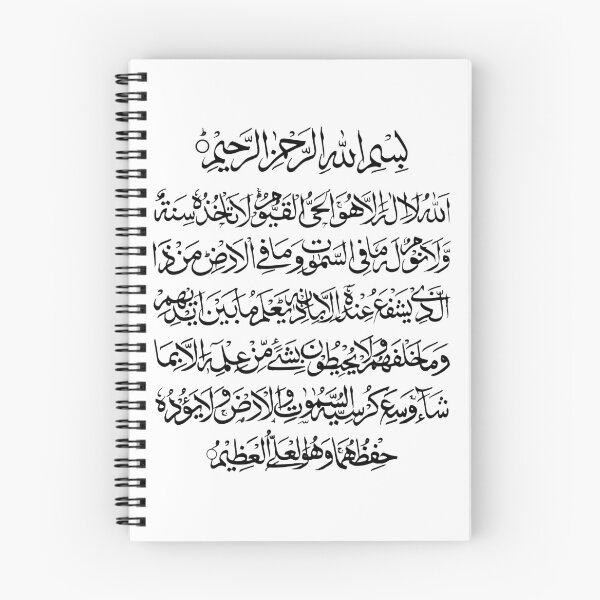 بِسْمِ اللهِ الرَّحْمٰنِ الرَّحِيْمِ
اَللهُ لَا اِلٰهَ اِلَّا هُوَ الْحَیُّ الْقَيُّوْمُ لَا تَاْخُذُهٗ سِنَةٌ
وَّلَا نَوْمٌ لَهٗ مَا فِی السَّمٰوٰتِ وَمَا فِی الْاَرْضِ مَنْ ذَا
الَّذِیْ يَشْفَعُ عِنْدَهٗ اِلَّا بِاِذْنِهٖ يَعْلَمُ مَا بَيْنَ اَيْدِيْهِمْ
وَمَا خَلْفَهُمْ وَلَا يُحِيْطُوْنَ بِشَیْءٍ مِّنْ عِلْمِهٖ اِلَّا بِمَا
شَآءَ وَسِعَ كُرْسِيُّهُ السَّمٰوٰتِ وَالْاَرْضَ وَلَا يَـُٔوْدُهٗ
حِفْظُهُمَا وَهُوَ الْعَلِیُّ الْعَظِيْمُ